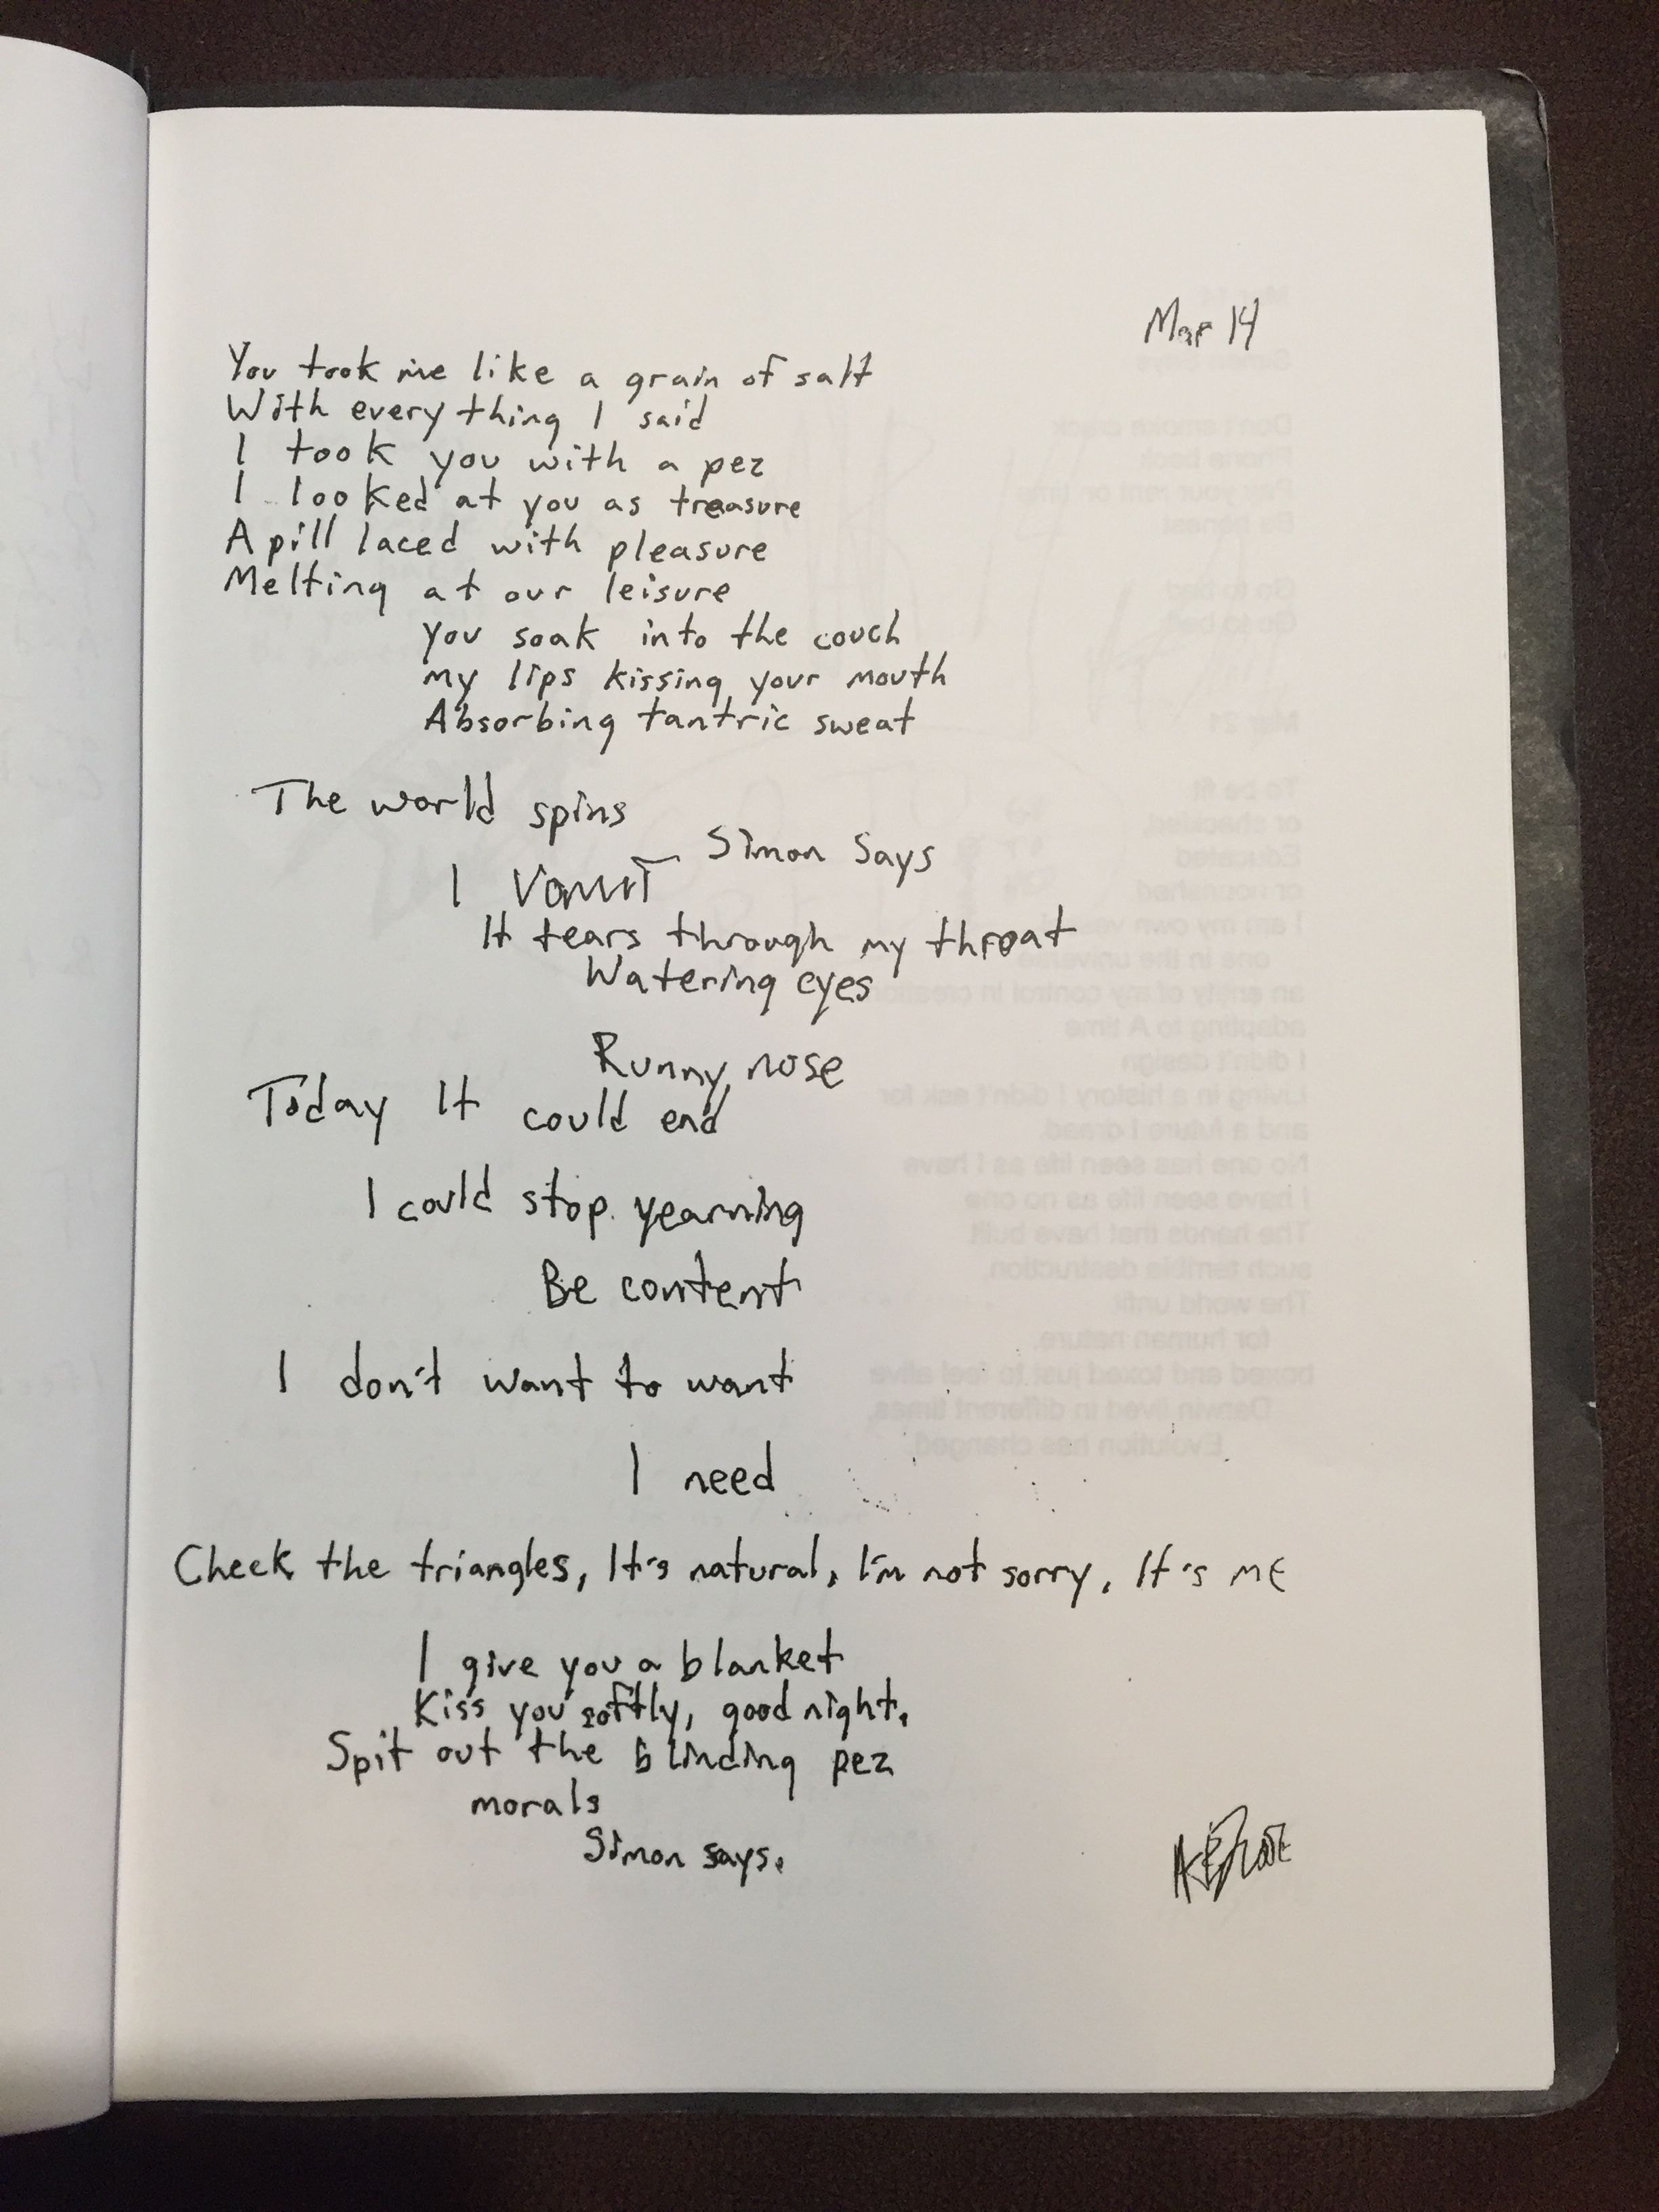 Mar 14
You took me like a grain of salt
With everything I said
I took you with a pez
I looked at you as treasure
A pill laced with pleasure
Melting at our leisure
you soak into the couch
my lips kissing your mouth
Absorbing tantric sweat
The world spins
Simon Says
I Vomit
It tears through my throat
Watering eyes
Runny nose
Today It could end
I could stop yearning
Be content
I don't want to want
I need
Check the triangles, It's natural, I'm not sorry, It's ME
I give you a blanket
Kiss you softly, good night.
Spit out the blinding pez
morals
Simon says.